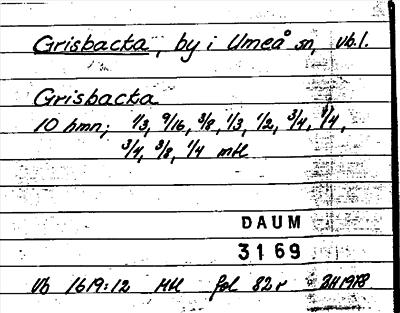 Grisbacka, by i Umeå sn, vb.l.
Grisbacka
10 hmn; 1/3, 9/16, 3/8, 1/3, 1/2, 3/4, 1/4,
3/4, 3/8, 1/4 mtl
DAUM
3169
Vb 1619:12 Mtl fol 82r BH1978